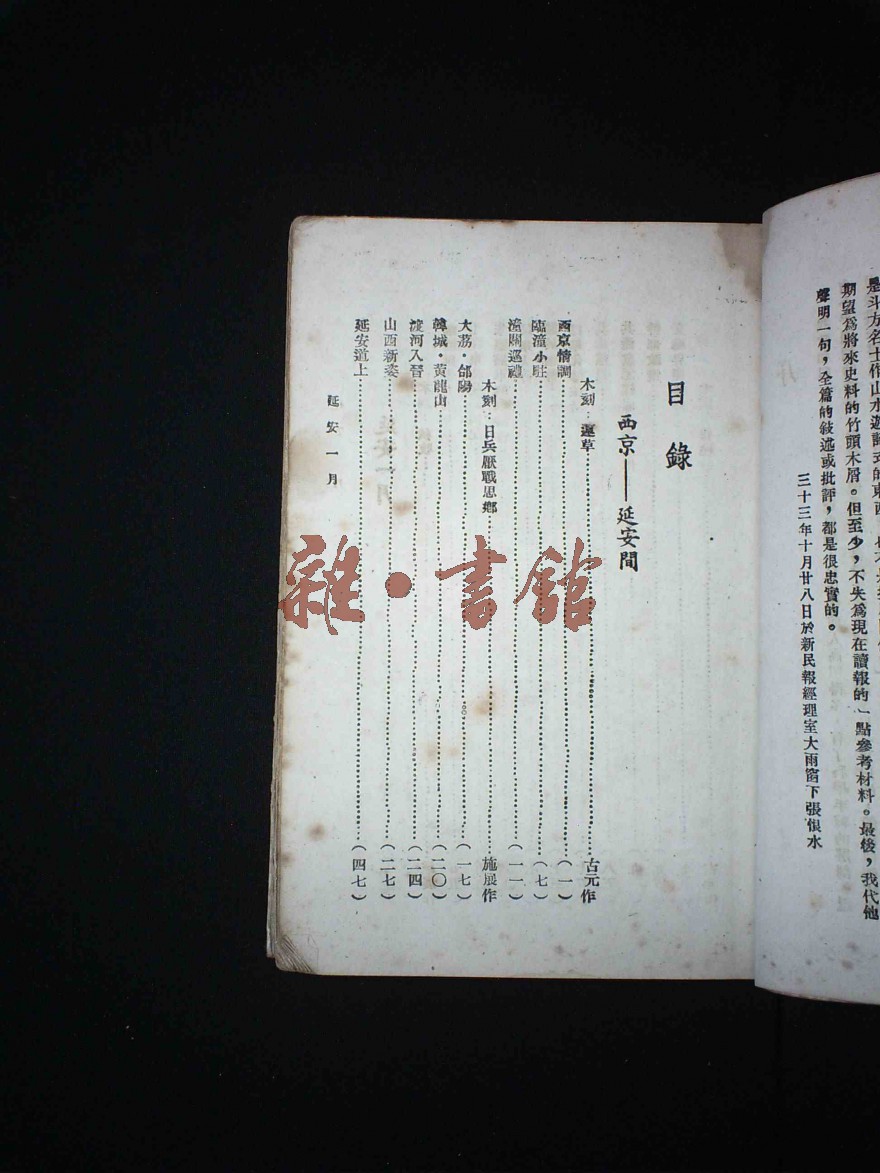 期望爲將來史料的竹頭木屑。但至少，不失爲現在讀報的一點參考材料。最後，我代他
聲明一句，全篇的敍述或批評，都是很忠實的。
三十三年十月廿八日於新民報經理室大雨窗下張恨水
目錄
西京——延安間
木刻：運草……古元作
西京情調……(一)
臨潼小駐……(七)
潼關巡禮……(一一)
木刻：日兵厭戰思鄉……施展作
大荔·郃陽……(一七)
韓城·黃龍山……(二〇)
渡河入晉……(二四)
山西新姿……(二七)
延安道上……(四七)
延安一月
雜·書館